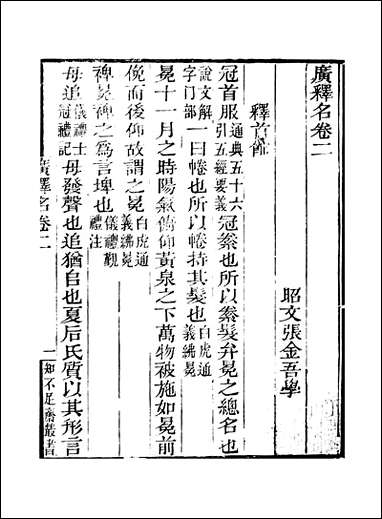 廣釋名卷二
昭文張金吾學
釋首飾
冠首服通典五十六引五經要義冠絭也所以絭髮弁冕之總名也
說文解字冂部一曰帣也所以帣持其髮也白虎通義紼冕
冕十一月之時陽氣俯仰黃泉之下萬物被施如冕前
俛而後仰故謂之冕白虎通義紼冕
裨冕裨之為言埤也儀禮覲禮注
毋追儀禮士冠禮記毋發聲也追猶自也夏后氏質以其形言
廣釋名卷二
一知不足齋叢書